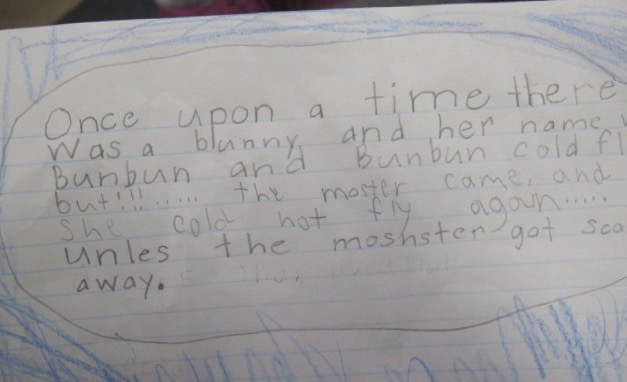 Once upon a time there
Was a blunny, and her name
Bunbun and Bunbun cold fl
but!!!...... the moster came, and
She cold not fly again.....
unles the moshster got sca
away.